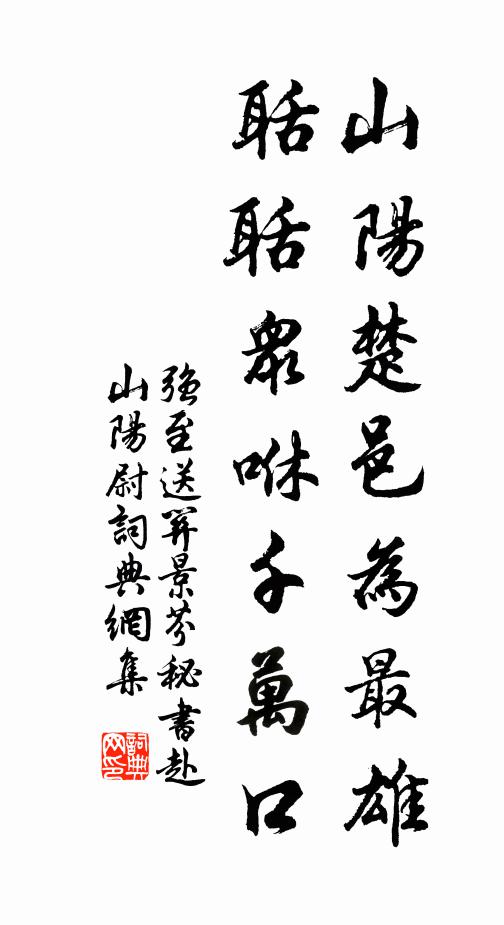 山陽楚邑為最雄
聒聒眾咻千萬口
強至送羿景芬秘書赴
山陽尉詞典網集
詞典
网印